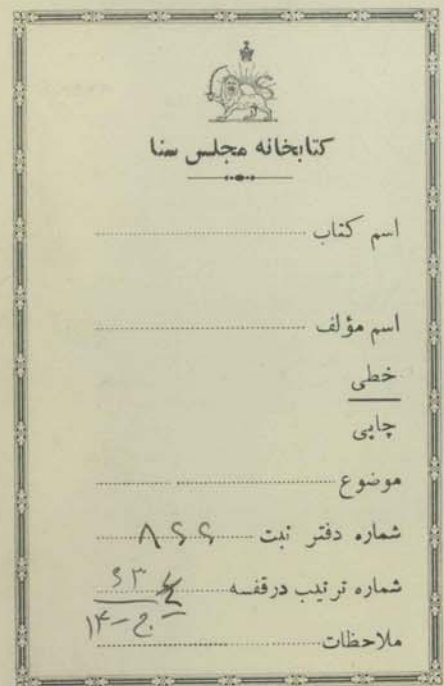 کتابخانه مجلس سنا
اسم کتاب
اسم مؤلف
خطی
چاپی
موضوع
شماره دفتر ثبت ۸۶۶
شماره ترتیب درقفسه ۶۳
ج-۱۴
ملاحظات